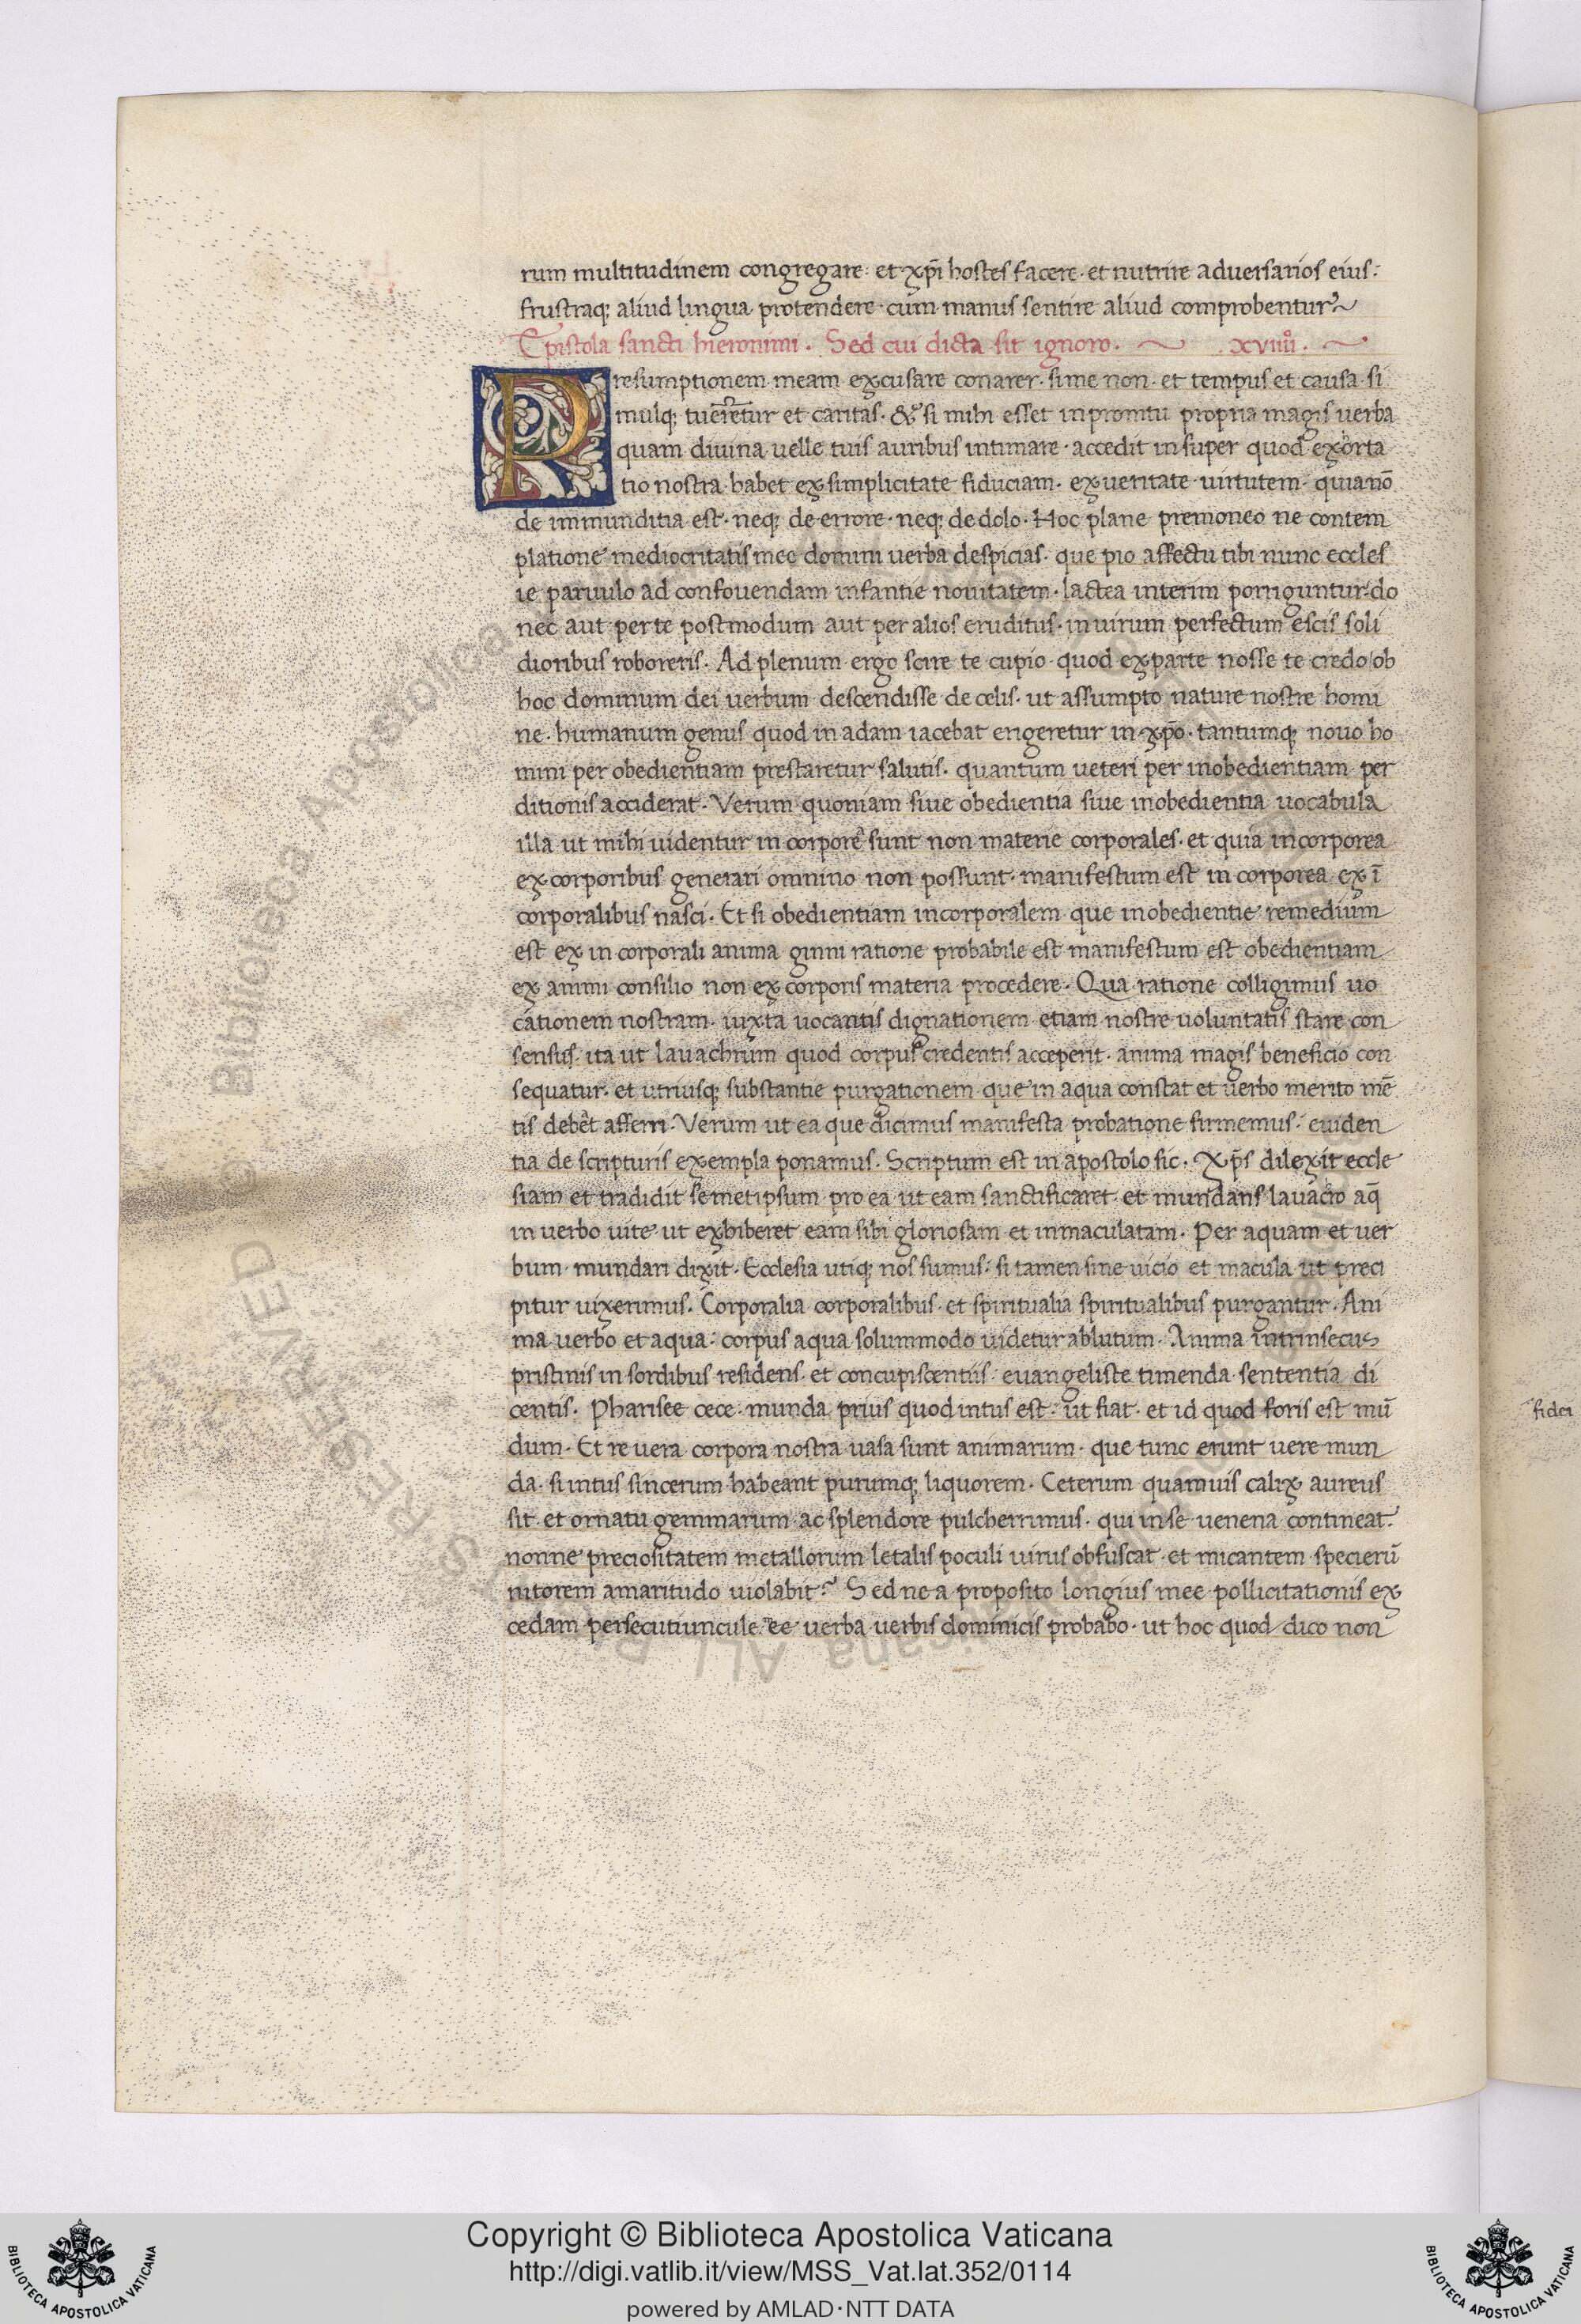 rum multitudinem congregare· et xp̄i hostes facere· et nutrire adversarios eius:
frustraq; aliud lingua protendere· cum manus sentire aliud comprobentur~
Epistola sancti hieronimi. Sed cui dicta sit ignoro. ~ .xviiii. ~
Presumptionem meam excusare conarer· si me non· et tempus et causa· si
mulq; tueretur et caritas· & si mihi esset in promtu propria magis uerba
quam diuina uelle tuis auribus intimare· accedit in super quod exorta
tio nostra habet ex simplicitate fiduciam· ex ueritate uirtutem· quia nō
de immunditia est· neq; de errore· neq; de dolo· Hoc plane premoneo ne contem
platione mediocritatis mee domini uerba despicias· que pio affectu tibi nunc eccles
ie paruulo ad confouendam infantie nouitatem· lactea interim porriguntur· do
nec aut per te postmodum aut per alios eruditus· in uirum perfectum escis soli
dioribus roboreris· Ad plenum ergo scire te cupio quod ex parte nosse te credo/ob
hoc dominum dei uerbum descendisse de celis· ut assumpto nature nostre homi
ne· humanum genus quod in adam iacebat erigeretur in xp̄o· tantumq; nouo ho
mini per obedientiam prestaretur salutis· quantum ueteri per inobedientiam per
ditionis acciderat· Verum quoniam siue obedientia siue inobedientia uocabula
illa ut mihi uidentur in corpore sunt non materie corporales· et quia incorporea
ex corporibus generari omnino non possunt· manifestum est in corporea ex ī
corporalibus nasci· Et si obedientiam incorporalem que inobedientie remedium
est ex in corporali anima ginni ratione probabile est manifestum est obedientiam
ex animi consilio non ex corporis materia procedere· Qua ratione colligimus uo
cationem nostram· iuxta uocantis dignationem etiam nostre uoluntatis stare con
sensus· ita ut lauachrum quod corpus credentis acceperit· anima magis beneficio con
sequatur· et utriusq; substantie purgationem que in aqua constat et uerbo merito mē
tis debēt afferri· Verum ut ea que dicimus manifesta probatione firmemus· euiden
tia de scripturis exempla ponamus· Scriptum est in apostolo sic· Xp̄s dilexit eccle
siam et tradidit semetipsum pro ea ut eam sanctificaret· et mundans lauacro aq̄
in uerbo uite· ut exhiberet eam sibi gloriosam et inmaculatam· Per aquam et uer
bum· mundari dixit· Ecclesia utiq; nos sumus· si tamen sine uicio et macula ut preci
pitur uixerimus· Corporalia corporalibus· et spiritualia spiritualibus purgantur· Ani
ma uerbo et aqua: corpus aqua solummodo uidetur ablutum· Anima intrinsecus
pristinis in sordibus residens· et concupiscentiis· euangeliste timenda sententia di
centis· Pharisee cece· munda prius quod intus est· ut fiat· et id quod foris est mū
dum· Et re uera corpora nostra uasa sunt animarum· que tunc erunt uere mun
da· si intus sincerum habeant purumq; liquorem· Ceterum quamuis calix aureus
sit· et ornatu gemmarum ac splendore pulcherrimus· qui in se uenena contineat·
nonne preciositatem metallorum letalis poculi uirus obfuscat· et micantem specierū
nitorem amaritudo uiolabit? Sed ne a proposito longius mee pollicitationis ex
cedam persecutiuncule ee uerba uerbis dominicis probabo· ut hoc quod dico non
fidei
Copyright © Biblioteca Apostolica Vaticana
http://digi.vatlib.it/view/MSS_Vat.lat.352/0114
powered by AMLAD·NTT DATA
BIBLIOTECA APOSTOLICA VATICANA
BIBLIOTECA APOSTOLICA VATICANA